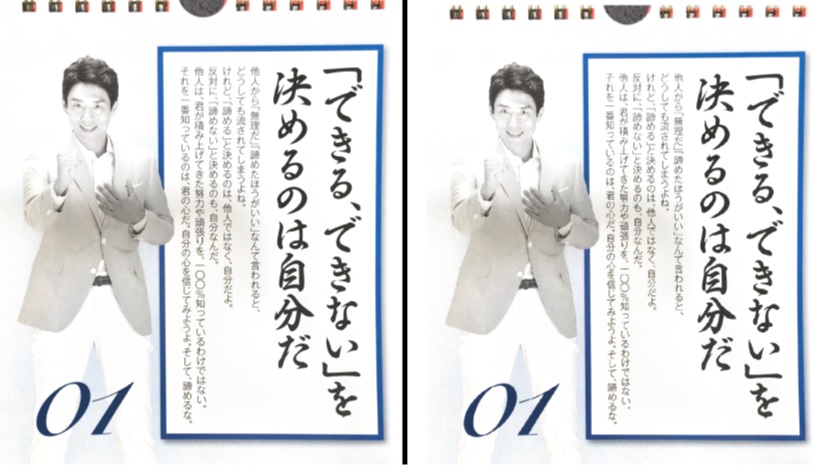 「できる、できない」を
決めるのは自分だ
他人から「無理だ」「諦めたほうがいい」なんて言われると、
どうしても流されてしまうよね。
けれど、「諦める」と決めるのは、他人ではなく、自分だよ。
反対に、「諦めない」と決めるのも、自分なんだ。
他人は、君が積み上げてきた努力や頑張りを、一〇〇%知っているわけではない。
それを一番知っているのは、君の心だ。自分の心を信じてみようよ。そして、諦めるな。
01
「できる、できない」を
決めるのは自分だ
他人から「無理だ」「諦めたほうがいい」なんて言われると、
どうしても流されてしまうよね。
けれど、「諦める」と決めるのは、他人ではなく、自分だよ。
反対に、「諦めない」と決めるのも、自分なんだ。
他人は、君が積み上げてきた努力や頑張りを、一〇〇%知っているわけではない。
それを一番知っているのは、君の心だ。自分の心を信じてみようよ。そして、諦めるな。
01